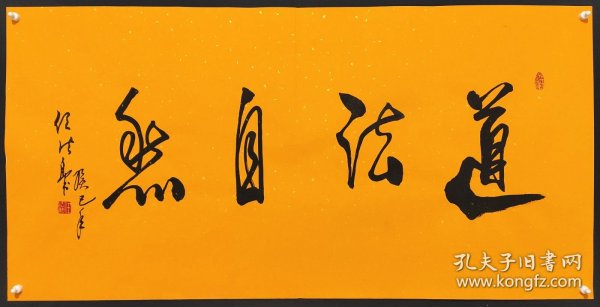 道法自然
癸巳年
孔夫子旧书网
www.kongfz.com